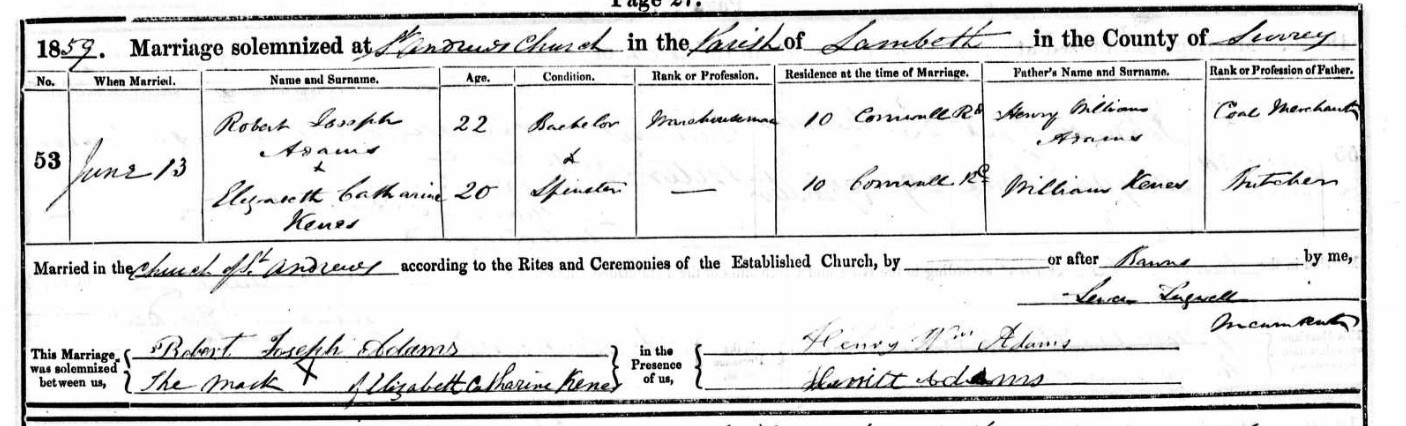 Page 27.
1859. Marriage solemnized at St Andrews Church in the Parish of Lambeth in the County of Surrey
No. When Married. Name and Surname. Age. Condition. Rank or Profession. Residence at the time of Marriage. Father's Name and Surname. Rank or Profession of Father.
Robert Joseph 22 Bachelor Warehouseman 10 Cornwall Rd Henry William Coal Merchant
Adams & Adams
53 June 13 &
Elizabeth Catharine 20 Spinster — 10 Cornwall Rd William Kenes Butcher
Kenes
Married in the Church of St Andrews according to the Rites and Ceremonies of the Established Church, by or after Banns by me,
Incumbent
This Marriage was solemnized between us, Robert Joseph Adams in the Presence of us, Henry Wm Adams
The mark X of Elizabeth Catharine Kenes Adams